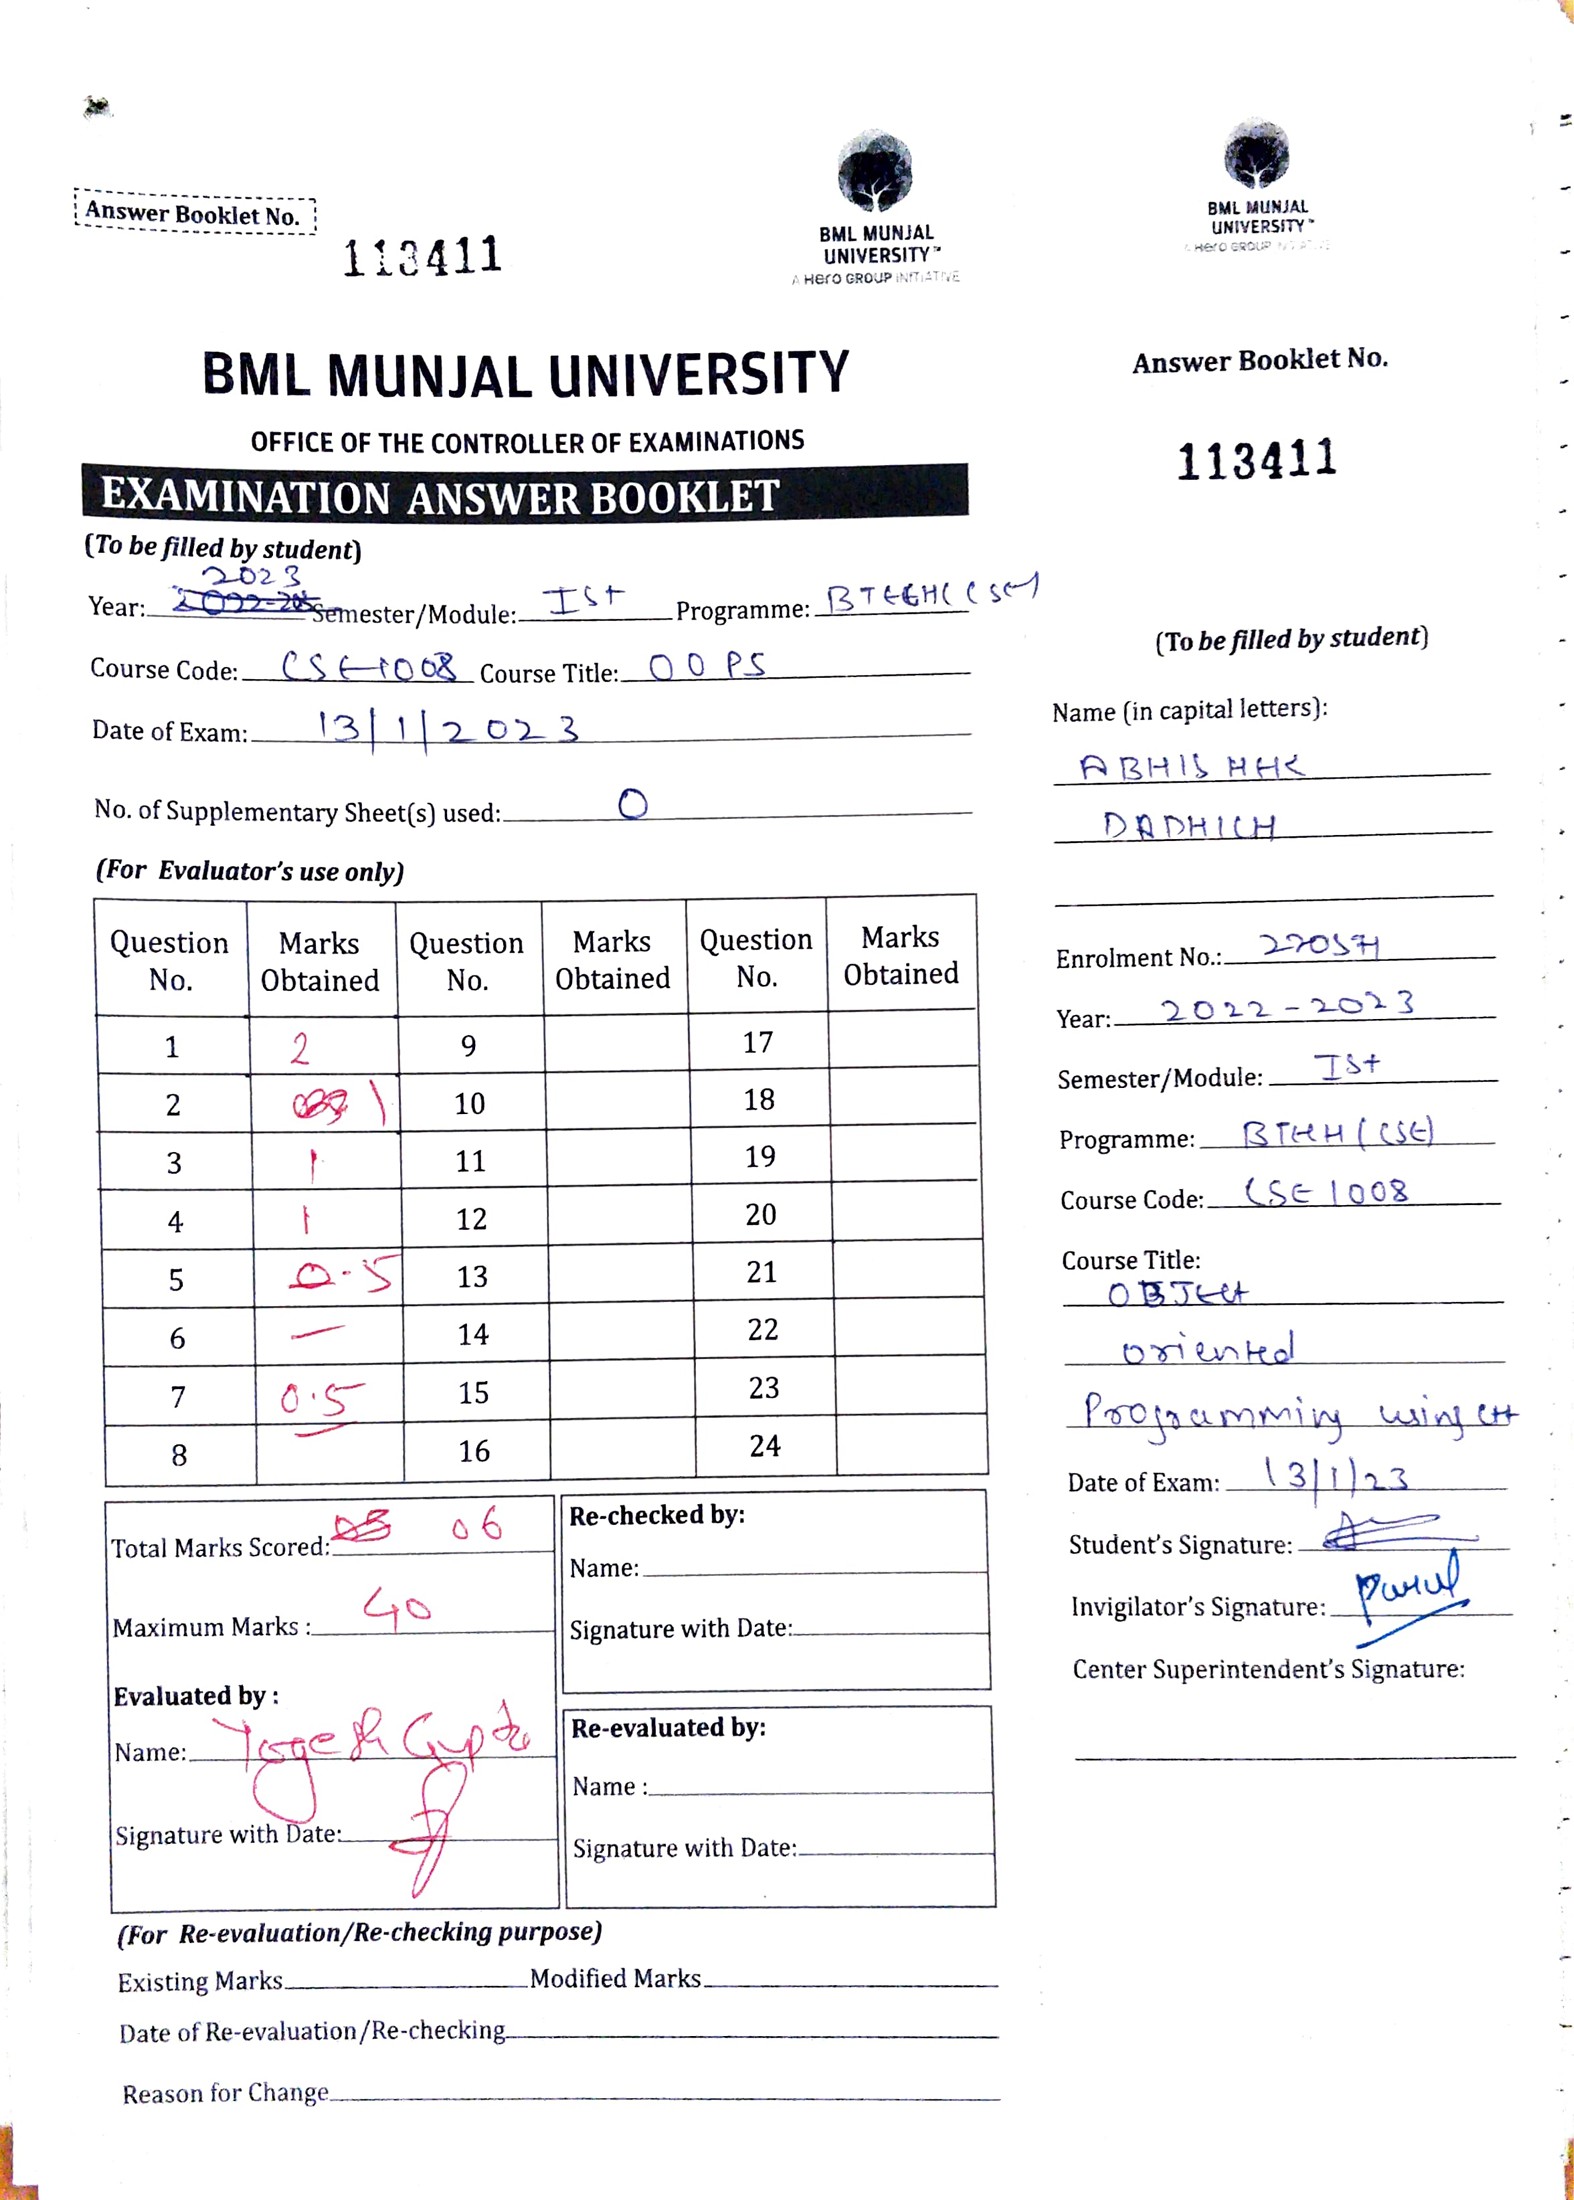 Answer Booklet No.
113411
BML MUNJAL
UNIVERSITY™
A Hero GROUP INITIATIVE
BML MUNJAL UNIVERSITY
OFFICE OF THE CONTROLLER OF EXAMINATIONS
EXAMINATION ANSWER BOOKLET
(To be filled by student)
2023
Year: Semester/Module: ISt Programme:
Course Code: CSE1008 Course Title: OOPS
Date of Exam: 13/1/2023
No. of Supplementary Sheet(s) used: 0
(For Evaluator's use only)
Question No. Marks Obtained Question No. Marks Obtained Question No. Marks Obtained
1 2 9 17
2 1 10 18
3 1 11 19
4 1 12 20
5 0.5 13 21
6 — 14 22
7 0.5 15 23
8 16 24
Total Marks Scored: 06
Maximum Marks : 40
Evaluated by :
Name: Yogesh Gupta
Signature with Date:
Re-checked by:
Name:
Signature with Date:
Re-evaluated by:
Name :
Signature with Date:
(For Re-evaluation/Re-checking purpose)
Existing Marks Modified Marks
Date of Re-evaluation/Re-checking
Reason for Change
BML MUNJAL
UNIVERSITY™
A Hero GROUP INITIATIVE
Answer Booklet No.
113411
(To be filled by student)
Name (in capital letters):
ABHISHEK
DADHICH
Enrolment No.:
Year: 2022-2023
Semester/Module: ISt
Programme: (CSE)
Course Code: CSE1008
Course Title:
OBJECT
oriented
Programming using C++
Date of Exam: 13/1/23
Student's Signature:
Invigilator's Signature: Parul
Center Superintendent's Signature: